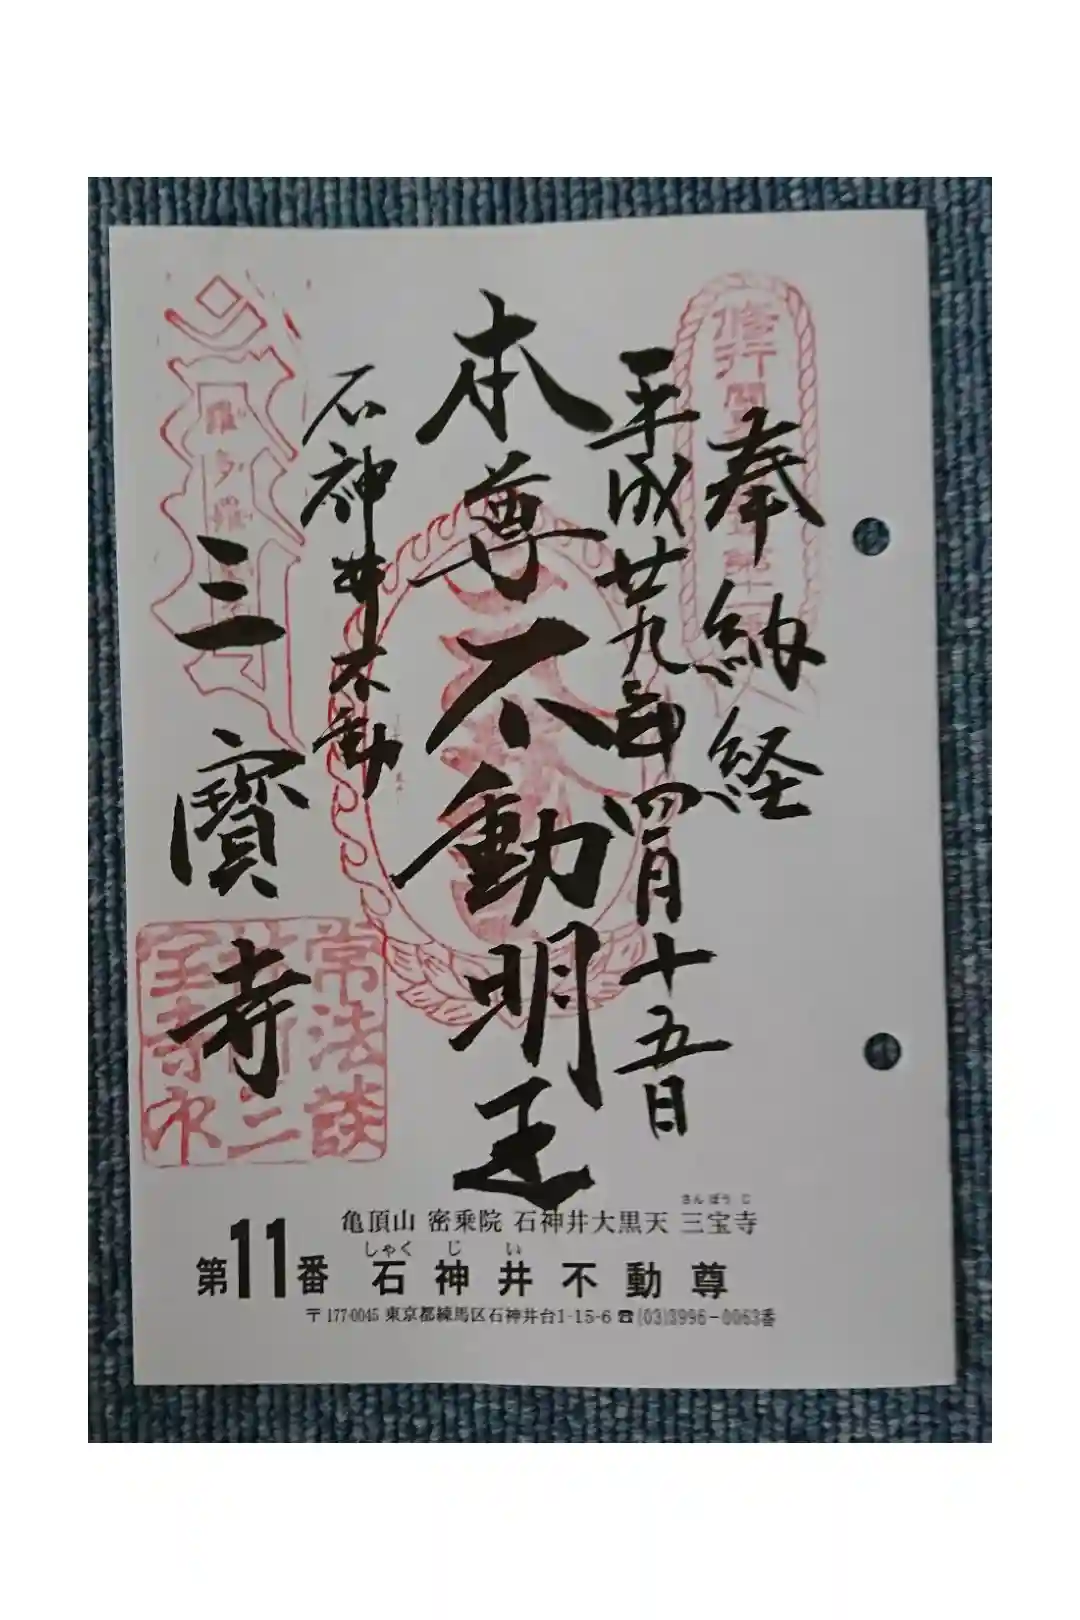 奉納経
平成廿九年四月十五日
本尊不動明王
石神井不動
三寳寺
常法談
さんぽうじ
亀頂山 密乗院 石神井大黒天 三宝寺
しゃくじい
第11番 石神井不動尊
〒177-0045 東京都練馬区石神井台1-15-6 ☎(03)3996-0063番